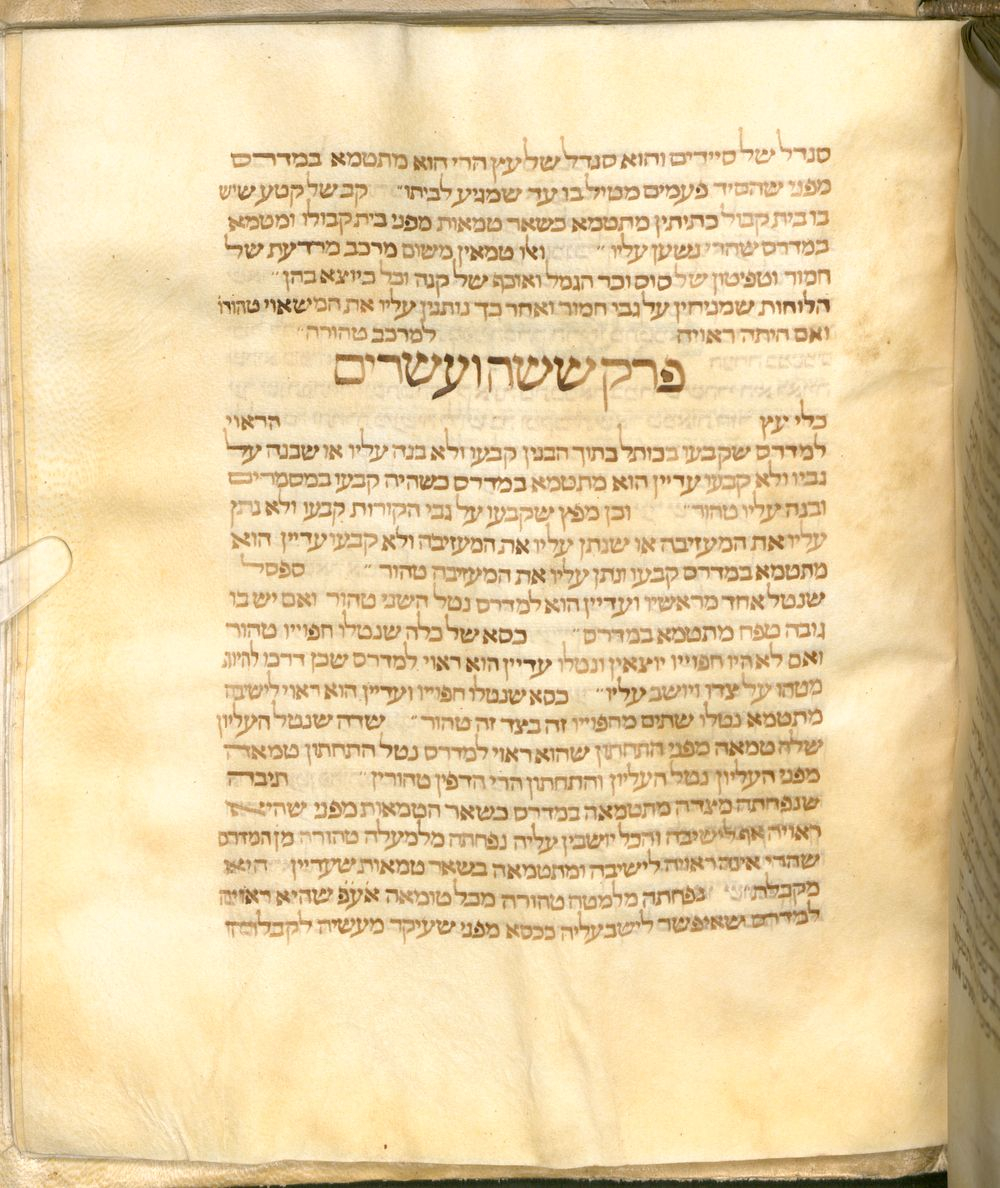 סנדל של סיידים והוא סנדל של עץ הרי הוא מתטמא במדרס
מפני שהסיד פעמים מטייל בו עד שמגיע לביתו״ קב של קטע שיש
בו בית קבול כתיתין מתטמא בשאר טמאות מפני בית קבולו ומטמא
במדרס שהרי נשען עליו״ ואלו טמאין משום מרכב מרדעת של
חמור וטפיטון של סוס וכר הגמל ואוכף של קנה וכל כיוצא בהן״
הלוחות שמניחין על גבי חמור ואחר כך נותנין עליו את המשאוי טהורות
ואם היתה ראויה למרכב טהורה״
פרק ששה ועשרים
כלי עץ הראוי
למדרס שקבעו בכותל בתוך הבנין קבעו ולא בנה עליו או שבנה על
גביו ולא קבעו עדיין הוא מתטמא במדרס כשהיה קבעו במסמרים
ובנה עליו טהור״ וכן מפץ שקבעו על גבי הקורות קבעו ולא נתן
עליו את המעזיבה או שנתן עליו את המעזיבה ולא קבעו עדיין הוא
מתטמא במדרס קבעו ונתן עליו את המעזיבה טהור״ ספסל
שנטל אחד מראשיו ועדיין הוא למדרס נטל השני טהור ואם יש בו
גובה טפח מתטמא במדרס״ כסא של כלה שנטלו חפוייו טהור
ואם לא היו חפוייו יוצאין ונטלו עדיין הוא ראוי למדרס שכן דרכו להיות
מטהו על צדו ויושב עליו״ כסא שנטלו חפוייו ועדיין הוא ראוי לישיבה
מתטמא נטלו שתים מחפוייו זה בצד זה טהור״ שדה שנטל העליון
שלה טמאה מפני התחתון שהוא ראוי למדרס נטל התחתון טמאה
מפני העליון נטל העליון והתחתון הרי הדפין טהורין״ תיבה
שנפחתה מצדה מתטמאה במדרס כשאר הטמאות מפני שהיא
ראויה אף לישיבה והכל יושבין עליה נפחתה מלמעלה טהורה מן המדרס
שהרי אינה ראויה לישיבה ומתטמאה בשאר טמאות שעדיין היא
מקבלת״ נפחתה מלמטה טהורה מכל טומאה אעפ שהיא ראויה
למדרס ושאיפשר לישב עליה ככסא מפני שעיקר מעשיה לקבלה